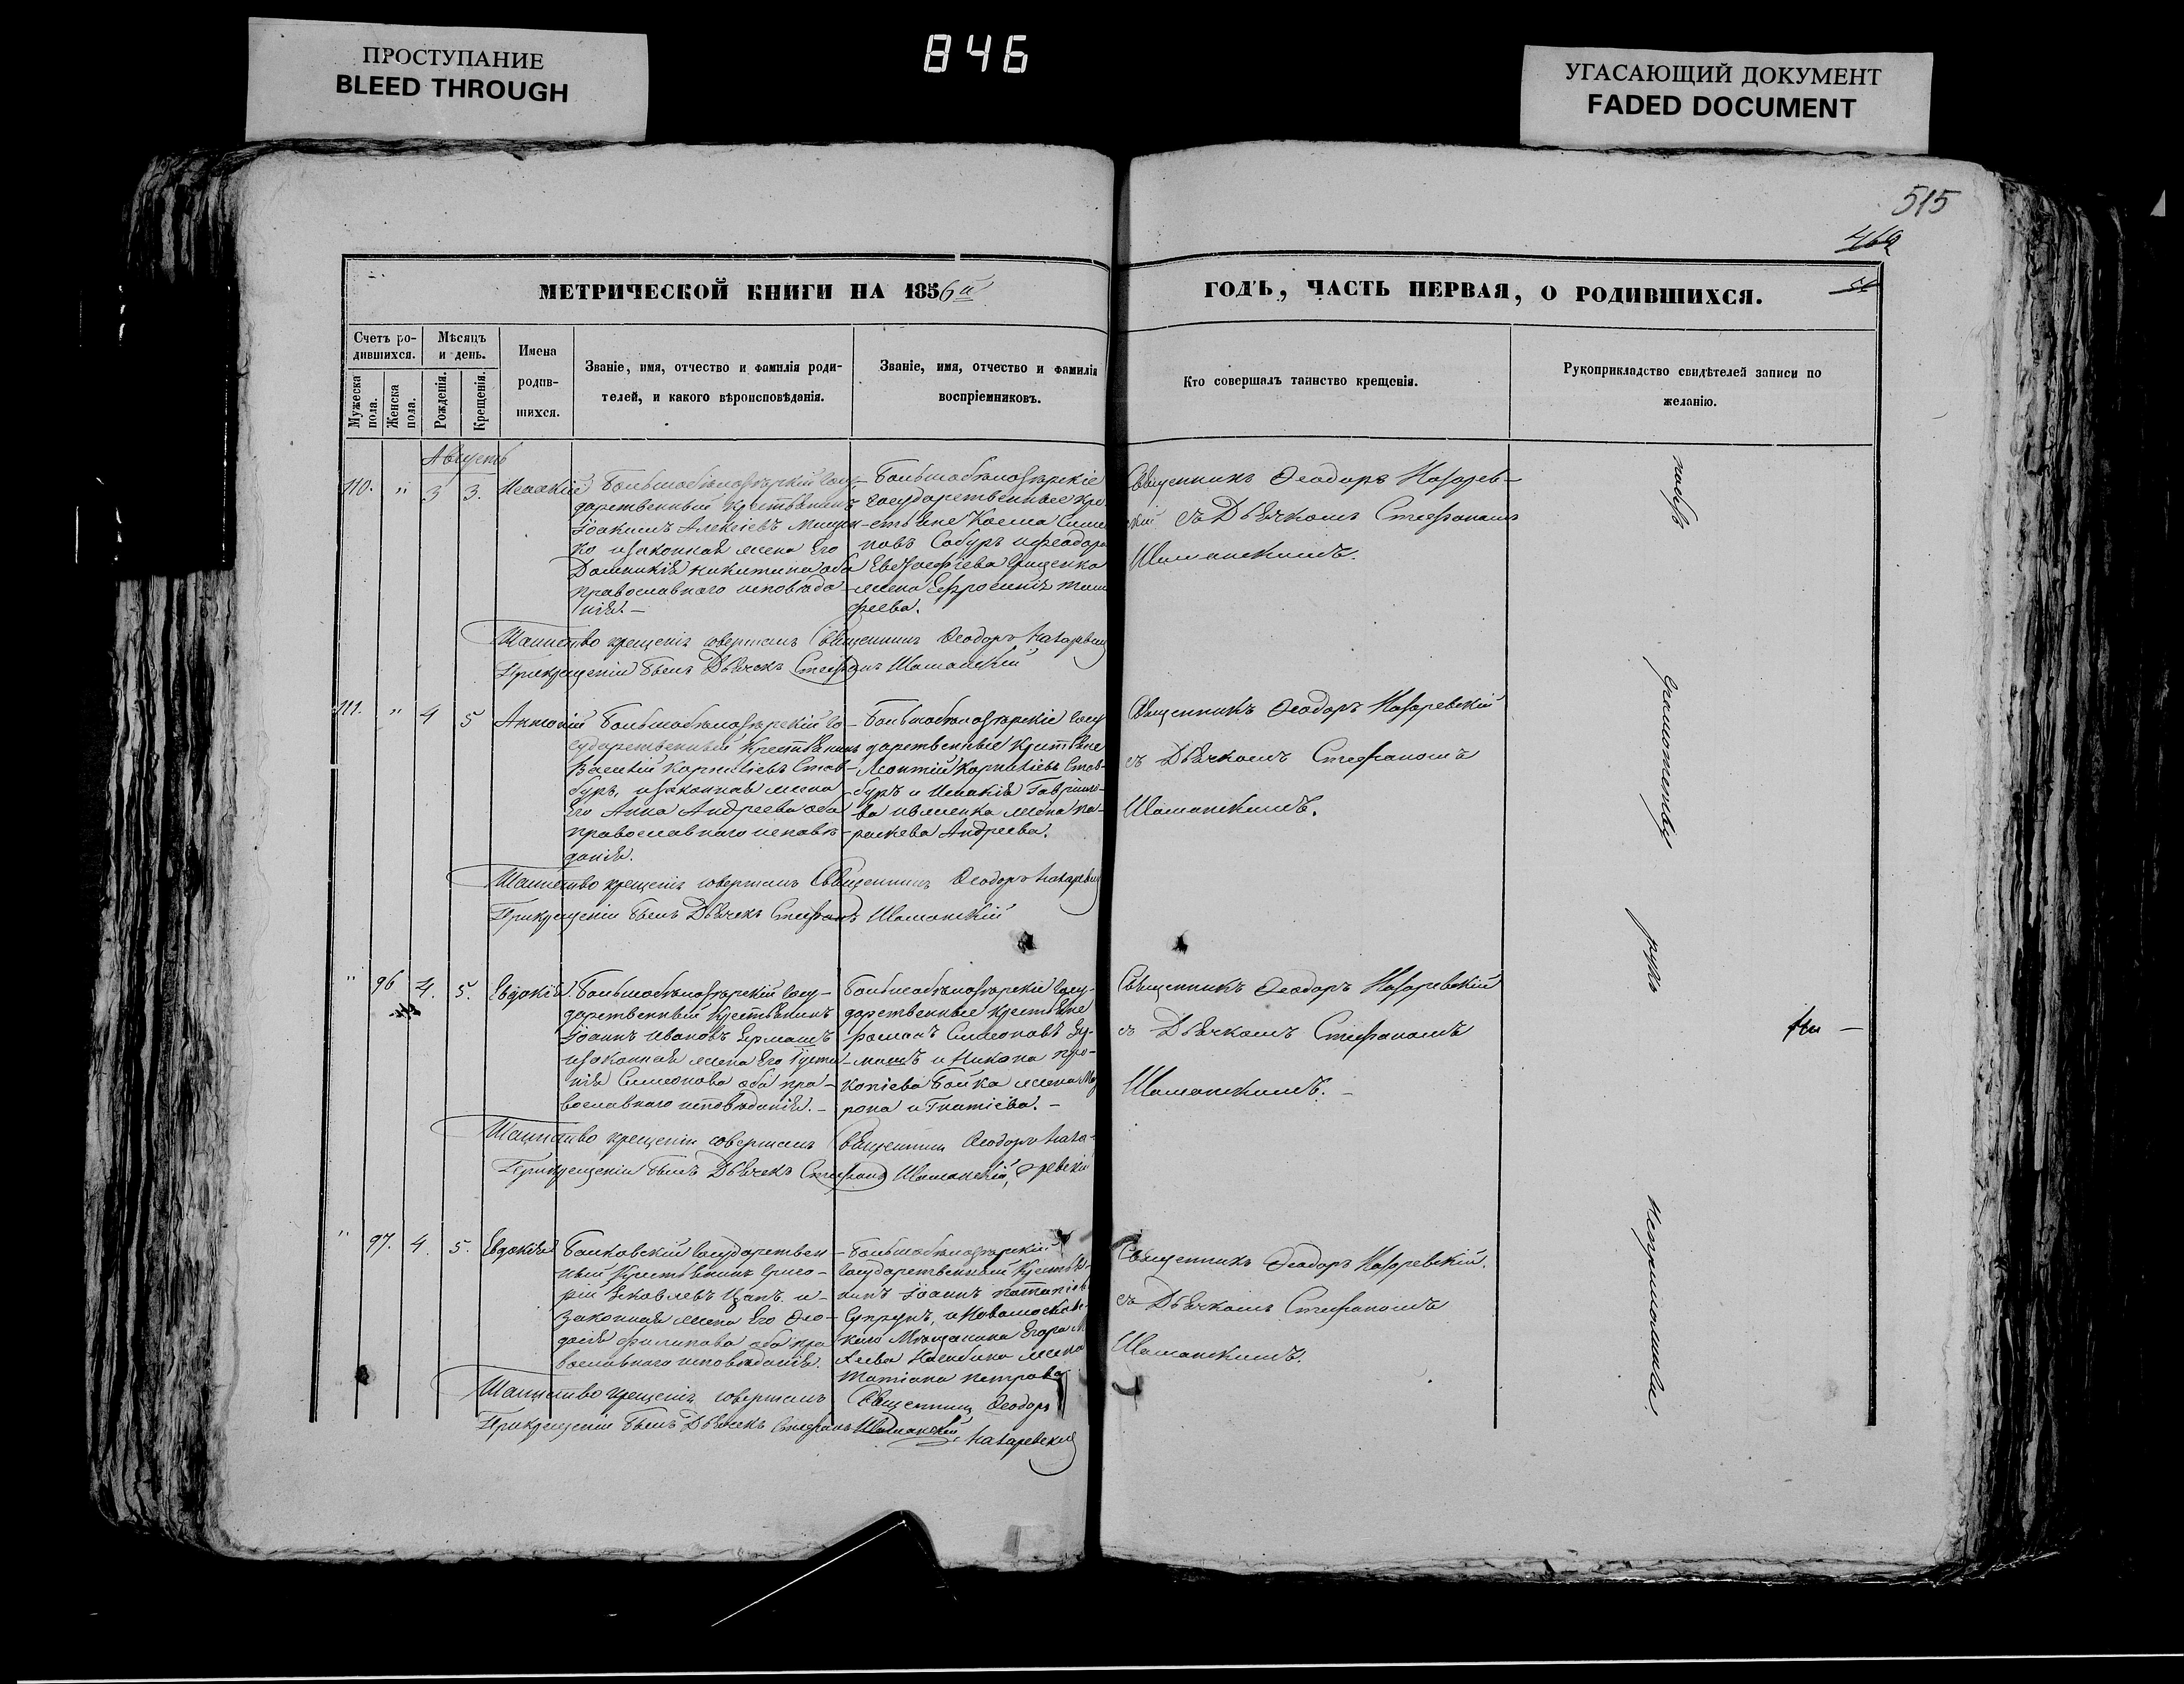 ПРОСТУПАНИЕ
BLEED THROUGH
846
УГАСАЮЩИЙ ДОКУМЕНТ
FADED DOCUMENT
515
МЕТРИЧЕСКОЙ КНИГИ НА 1856й
ГОДЪ, ЧАСТЬ ПЕРВАЯ, О РОДИВШИХСЯ.
Счетъ ро-
дившихся.
Мужеска
пола.
Женска
пола.
Мѣсяцъ
и день.
Рожденія.
Крещенія.
Имена
родив-
шихся.
Званіе, имя, отчество и фамилія роди-
телей, и какого вѣроисповѣданія.
Званіе, имя, отчество и фамилія
воспріемниковъ.
Кто совершалъ таинство крещенія.
Рукоприкладство свидѣтелей записи по
желанію.
Августъ
110. " 3 3. Исаакій
Большобѣлозѣрскій госу-
дарственный крестьянинъ
Іоакимъ Алексіевъ
ко изаконная жена Его
Домникія никитина оба
православнаго исповѣда-
нія.—
Большобѣлозѣрскіе
государственные кре-
стьяне Косма Симе
новъ Собуръ иѳеодора
Грищенка
жена Ефросинія Тимо
феева.
Священникъ Ѳеодоръ Назарев-
скій съ Дьячкомъ Стефаномъ
Шиманскимъ.
Таинство крещенія совершалъ Священникъ Ѳеодоръ Назаревскій
Прикрещеніи былъ Дьячекъ Стефанъ Шиманскій
111. " 4 5 Антоній
Большобѣлозѣрскій го-
сударственный крестьянинъ
Василій Корнилієвъ Стов-
буръ, изаконная жена
Его Анна Андреева оба
православнаго исповѣ-
данія.
Большобѣлозѣрскіе госу
дарственные крестьяне
Леонтій Корнилієвъ Стов-
буръ и Исаакія Гаврило-
ва жена па-
раскева Андреева.
Священникъ Ѳеодоръ Назаревскій
съ Дьячкомъ Стефаномъ
Шиманскимъ.
Таинство крещенія совершалъ Священникъ Ѳеодоръ Назаревскій
Прикрещеніи былъ Дьячекъ Стефанъ Шиманскій
" 96 4. 5. Евдокія.
Большобѣлозѣрскій госу-
дарственный крестьянинъ
Іоаннъ Ивановъ Ермашъ
изаконная жена Его Іусти
нія Симеонова оба пра-
вославнаго исповѣданія.—
Большобѣлозѣрскіе госу-
дарственные крестьяне
романъ Симеоновъ Ер-
машъ и Никона про-
копіева Бойка жена Мат
рона и Гнатіева.—
Священникъ Ѳеодоръ Назаревскій
съ Дьячкомъ Стефаномъ
Шиманскимъ.—
Таинство крещенія совершалъ Священникъ Ѳеодоръ Наза-
ревскій
Прикрещеніи былъ Дьячекъ Стефанъ Шиманскій,
" 97. 4. 5. Евдокія
Балковскій государствен
ный крестьянинъ Григо-
рій Яковлевъ Цапъ. и
законная жена Его Ѳео-
досія филипова оба пра
вославнаго исповѣданія.
Большобѣлозѣрскій
государственный крестья-
нинъ Іоаннъ потапіевъ
Супрунъ, иНовомосков-
скаго Мещанина Егора
жена
Татіана петрова
Священникъ Ѳеодоръ Назаревскій.
съ Дьячкомъ Стефаномъ
Шиманскимъ.
Таинство крещенія совершалъ Священникъ Ѳеодоръ
Назаревскій
Прикрещеніи былъ Дьячекъ Стефанъ Шиманскій,